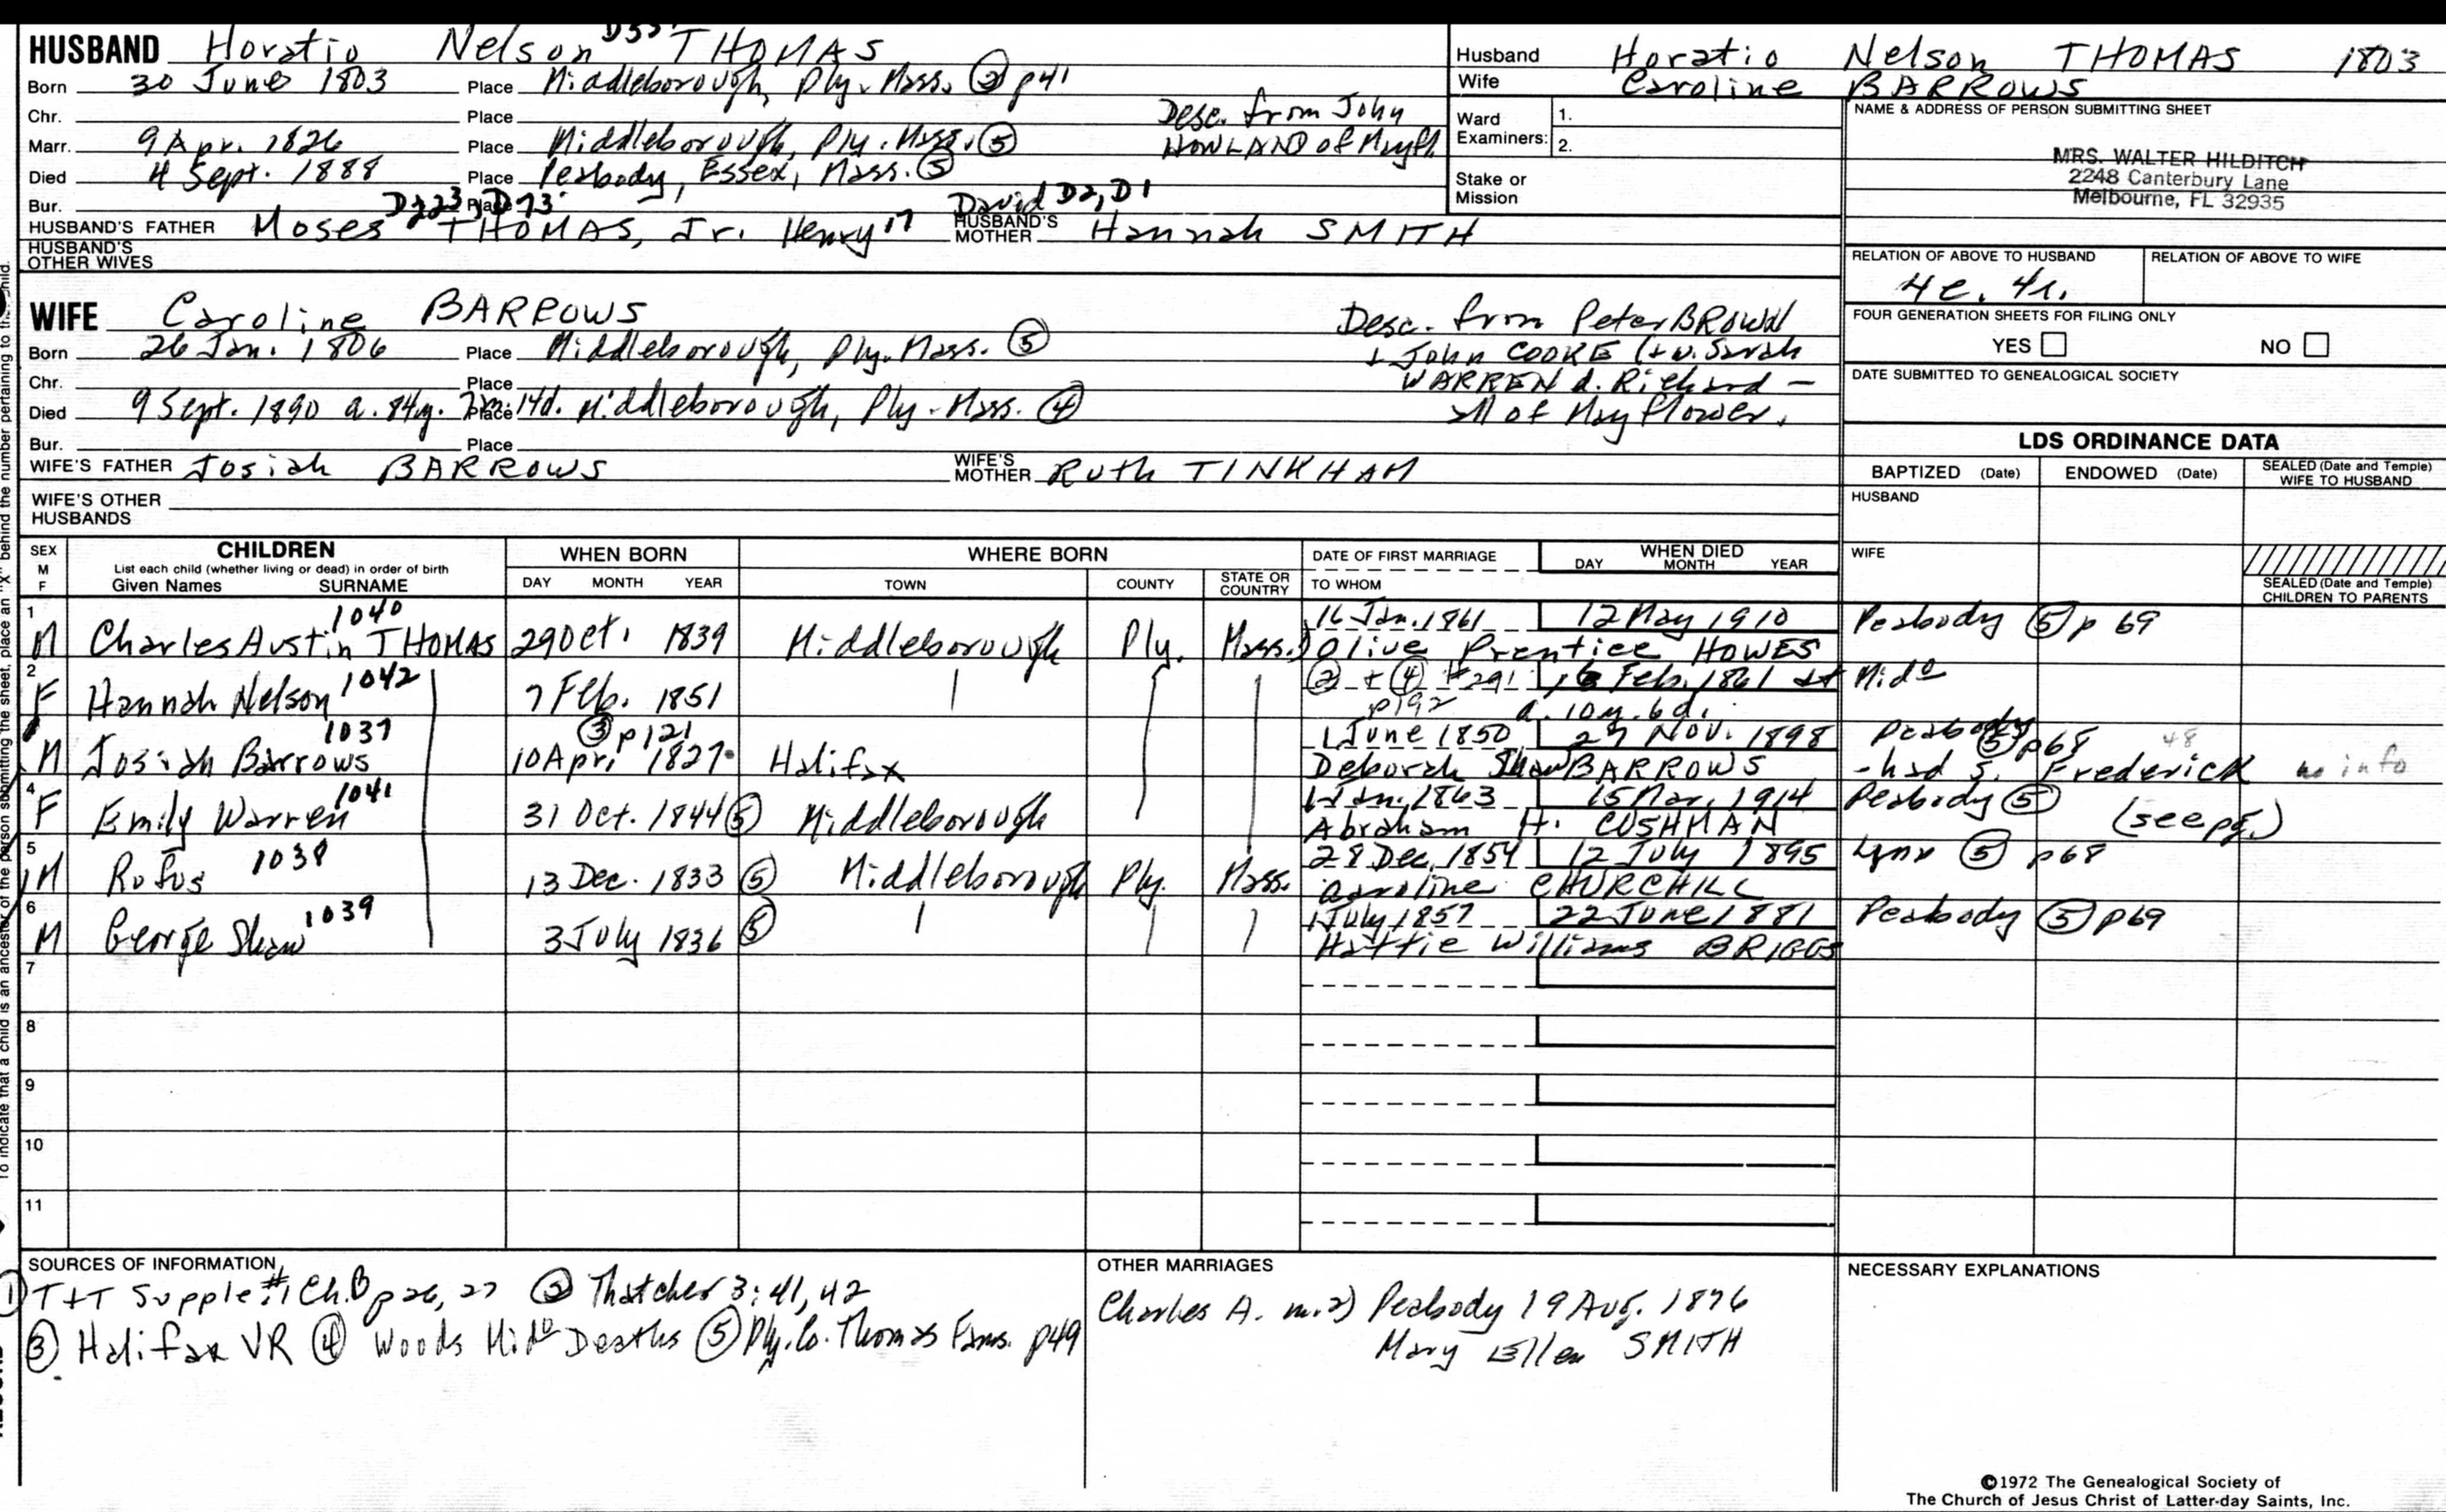 HUSBAND Horatio Nelson THOMAS
Born 30 June 1803 Place Middleborough, Ply. Mass. ② p41
Chr. Place Desc. from John
Marr. 9 Apr. 1826 Place Middleborough, Ply. Mass. ⑤ HOWLAND of Mayfl
Died 4 Sept. 1888 Place Peabody, Essex, Mass. ⑤
Bur. Place D223, D73 David D2, D1
HUSBAND'S FATHER Moses THOMAS, Jr. Henry 17 HUSBAND'S MOTHER Hannah SMITH
HUSBAND'S OTHER WIVES
Husband Horatio Nelson THOMAS 1803
Wife Caroline BARROWS
Ward Examiners: 1.
2.
Stake or Mission
NAME & ADDRESS OF PERSON SUBMITTING SHEET
MRS. WALTER HILDITCH
2248 Canterbury Lane
Melbourne, FL 32935
RELATION OF ABOVE TO HUSBAND RELATION OF ABOVE TO WIFE
4c. 4r.
FOUR GENERATION SHEETS FOR FILING ONLY
YES NO
DATE SUBMITTED TO GENEALOGICAL SOCIETY
WIFE Caroline BARROWS Desc. from Peter BROWN
Born 26 Jan. 1806 Place Middleborough, Ply. Mass. ⑤ + John COOKE (+ w. Sarah
Chr. Place WARREN d. Richard –
Died 9 Sept. 1890 a. 84y. 7m. 14d. Place Middleborough, Ply. Mass. ④ all of Mayflower.
Bur. Place
WIFE'S FATHER Josiah BARROWS WIFE'S MOTHER Ruth TINKHAM
WIFE'S OTHER HUSBANDS
LDS ORDINANCE DATA
BAPTIZED (Date) ENDOWED (Date) SEALED (Date and Temple) WIFE TO HUSBAND
HUSBAND
WIFE
SEALED (Date and Temple) CHILDREN TO PARENTS
SEX M F CHILDREN WHEN BORN WHERE BORN DATE OF FIRST MARRIAGE WHEN DIED
List each child (whether living or dead) in order of birth
Given Names SURNAME DAY MONTH YEAR TOWN COUNTY STATE OR COUNTRY TO WHOM DAY MONTH YEAR
1 1040 16 Jan. 1861 12 May 1910 Peabody ⑤ p 69
M Charles Austin THOMAS 29 Oct. 1839 Middleborough Ply. Mass. Olive Prentice HOWES
2 1042 ② + ④ #291 Feb. 1861 at Mido
F Hannah Nelson 7 Feb. 1851 p192 a. 10y. 6d.
1037 ③ p121 1 June 1850 27 Nov. 1898 Peabody ⑤ p68 48
M Josiah Barrows 10 Apr. 1827 Halifax Deborah Shaw BARROWS - had s. Frederick no info
4 1041 1 Jan. 1863 15 Mar. 1914 Peabody ⑤
F Emily Warren 31 Oct. 1844 ⑤ Middleborough Abraham H. CUSHMAN (see pg.)
5 1038 28 Dec. 1854 12 July 1895 Lynn ⑤ p68
M Rufus 13 Dec. 1833 ⑤ Middleborough Ply. Mass. Caroline CHURCHILL
6 1039 1 July 1857 22 June 1881 Peabody ⑤ p69
M George Shaw 3 July 1836 ⑤ Hattie Williams BRIGGS
7
8
9
10
11
SOURCES OF INFORMATION
① T+T Supple #1 Ch.B p 26, 27 ② Thatcher 3: 41, 42
③ Halifax VR ④ Woods Mido Deaths ⑤ Ply. Co. Thomas Fams. p49
OTHER MARRIAGES
Charles A. m. 2) Peabody 19 Aug. 1876
Mary Ellen SMITH
NECESSARY EXPLANATIONS
©1972 The Genealogical Society of
The Church of Jesus Christ of Latter-day Saints, Inc.